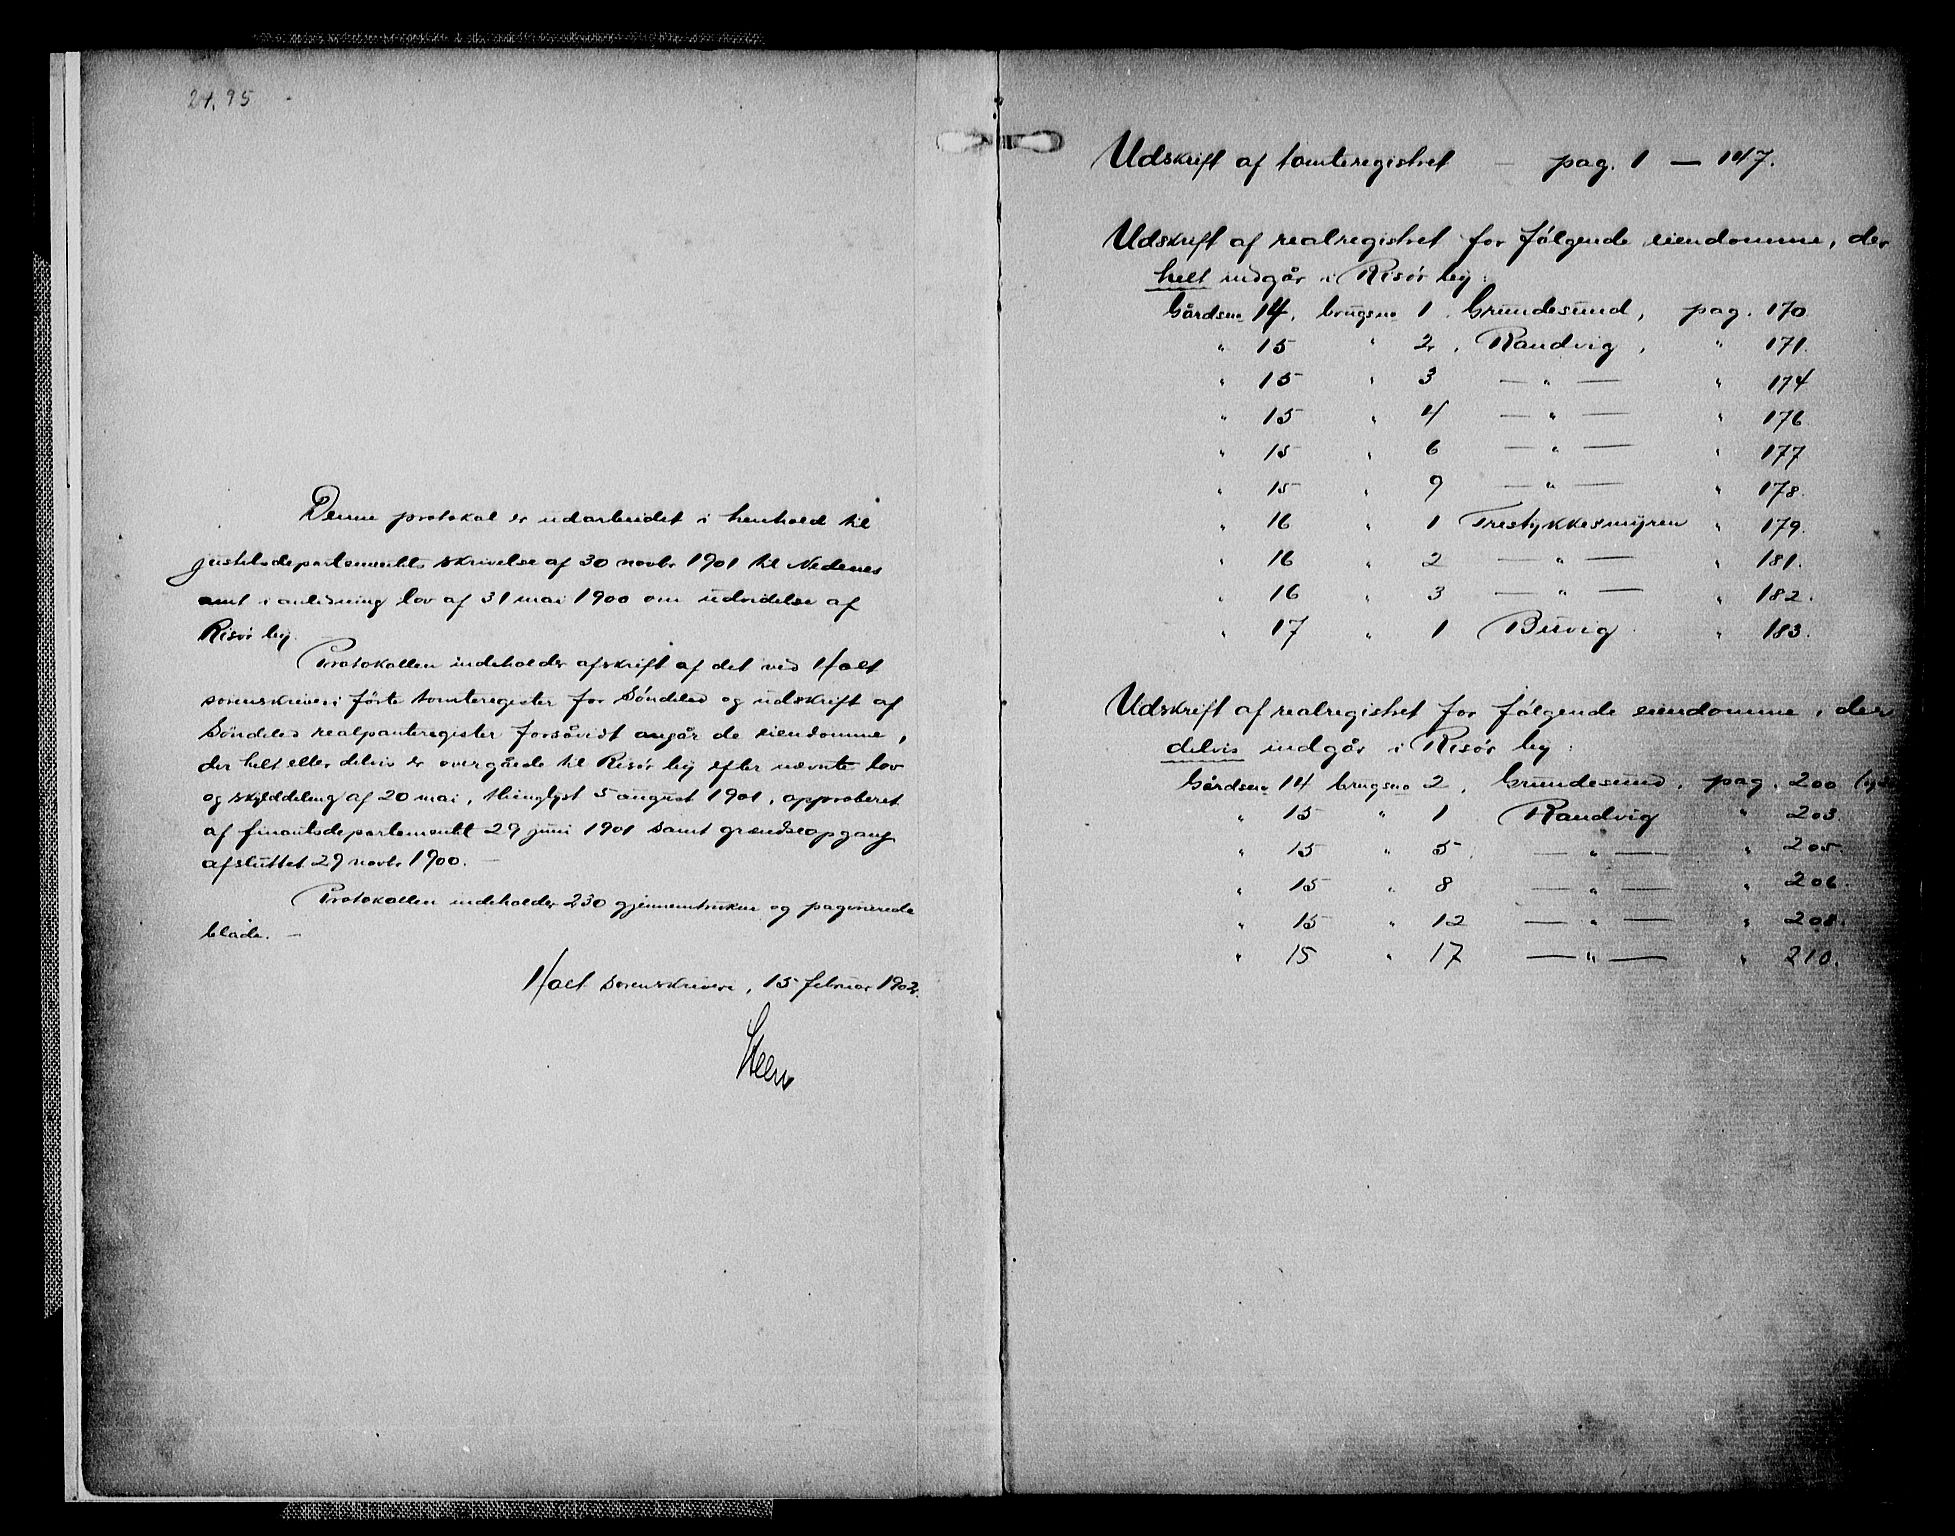 24.95
Denne protokol er udarbeidet i henhold til
justitsdepartementets skrivelse af 30 novbr 1901 til Nedenes
amt i anledning lov af 31 mai 1900 om udvidelse af
Risør by.
Protokollen indeholder afskrift af det ved Holt
sorenskriveri førte tomteregister for Søndeled og udskrift af
Søndeled realpanteregister forsåvidt angår de eiendomme,
der helt eller delvis er overgåede til Risør by efter nævnte lov
og skylddeling af 20 mai, thinglyst 5 august 1901, approberet
af finantsdepartementet 29 juni 1901 samt grændseopgang
afsluttet 29 novbr 1900. —
Protokollen indeholder 230 gjennemtrukne og paginerede
blade. —
Holt sorenskriveri, 15 februar 1902.
Steen
Udskrift af tomteregistret — pag. 1 — 147.
Udskrift af realregistret for følgende eiendomme, der
helt indgår i Risør by:
Gårdsno 14, brugsno 1, Grundesund, pag. 170
" 15 " 2, Randvig, " 171.
" 15 " 3 — " — " 174
" 15 " 4 — " — " 176
" 15 " 6 — " — " 177
" 15 " 9 — " — " 178.
" 16 " 1 Trestykkesmyren " 179.
" 16 " 2 — " — " 181.
" 16 " 3 — " — " 182.
" 17 " 1 Buvig " 183.
Udskrift af realregistret for følgende eiendomme, der
delvis indgår i Risør by:
Gårdsno 14 brugsno 2, Grundesund, pag. 200
" 15 " 1 Randvig " 203
" 15 " 5. — " — " 205
" 15 " 8 — " — " 206.
" 15 " 12 — " — " 208.
" 15 " 17 — " — " 210.